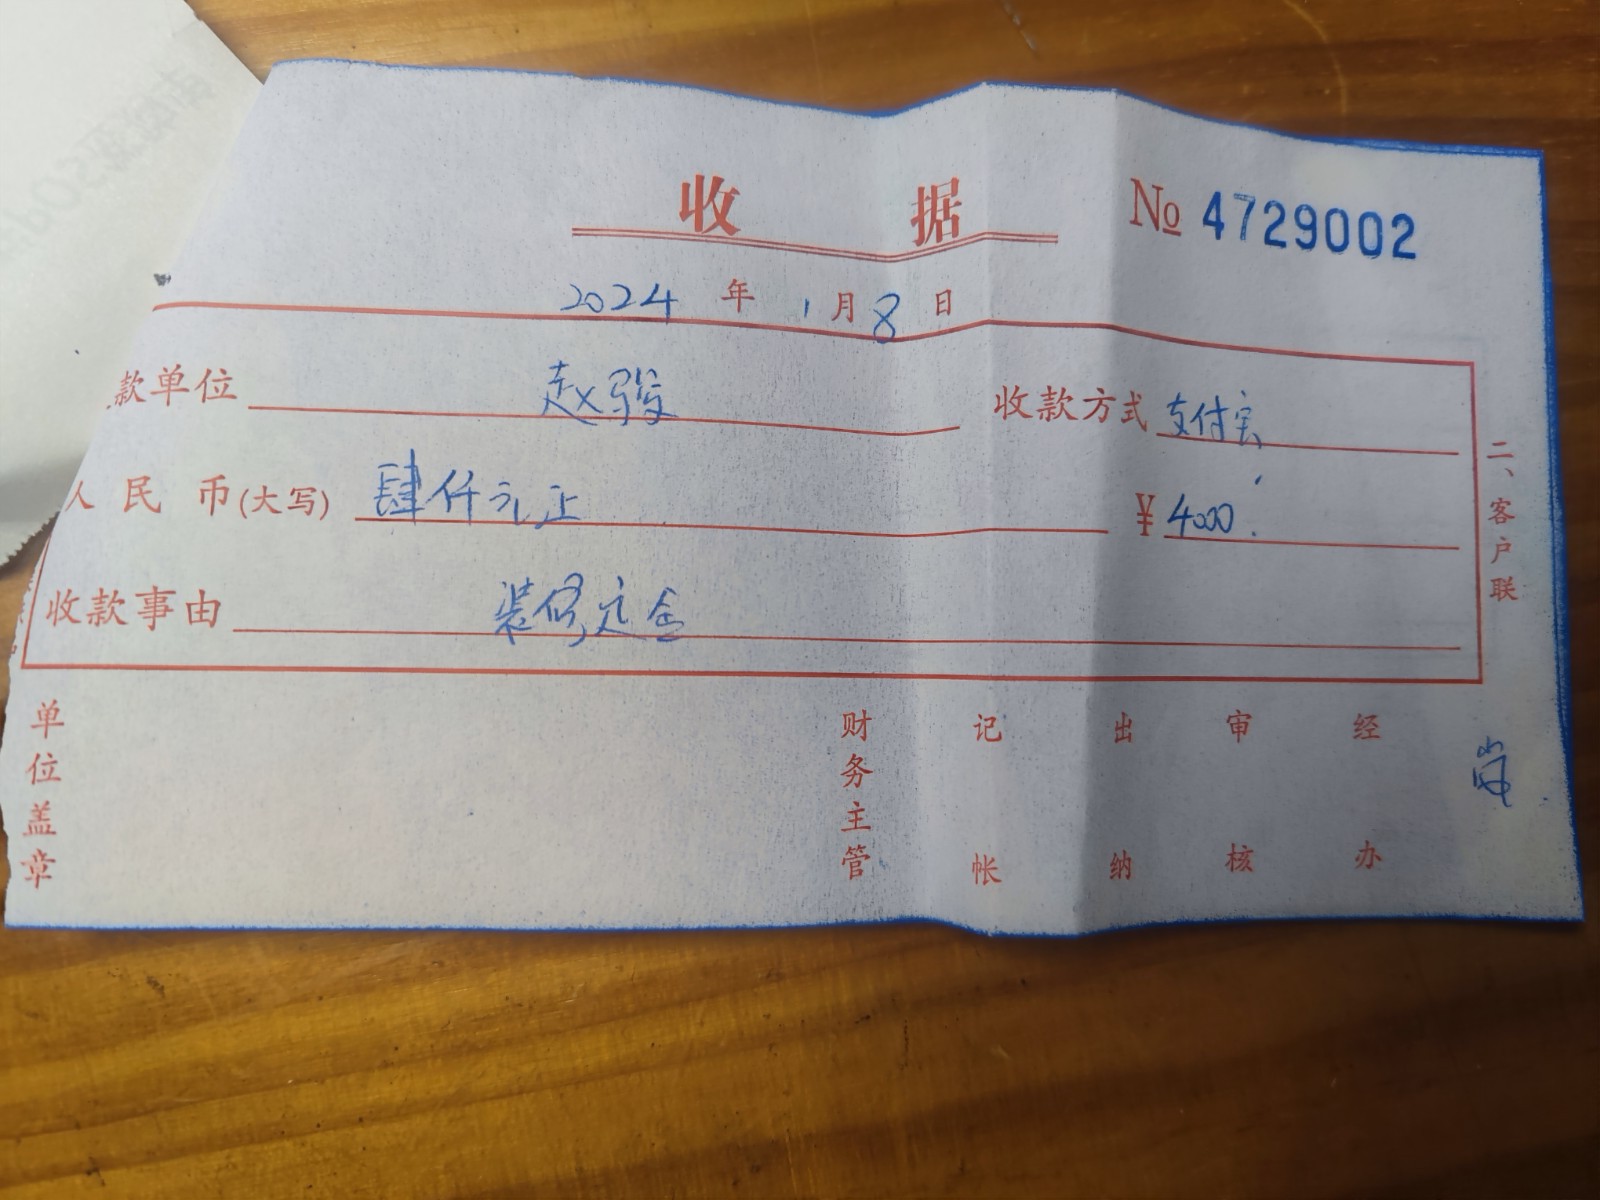 收据 № 4729002
2024年1月8日
款单位 赵骏 收款方式 支付宝
人民币(大写) 肆仟元正 ¥4000.
收款事由 装修定金
二、客户联
单位盖章 财务主管 记帐 出纳 审核 经办